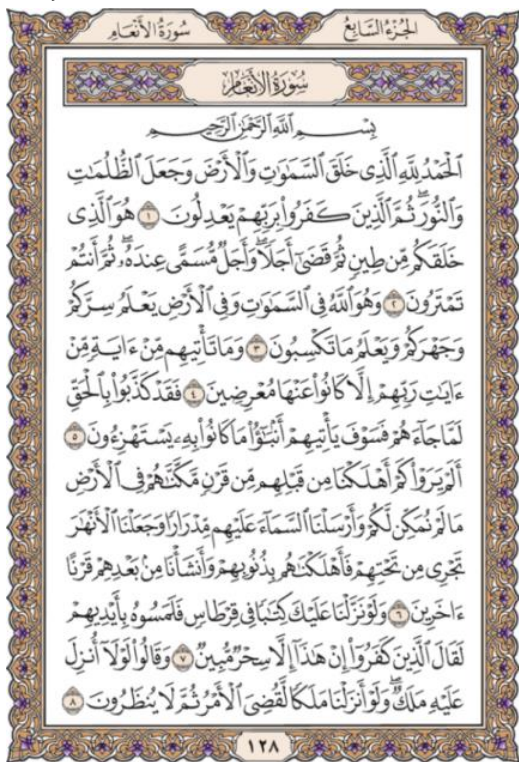 الجُزْءُ السَّابِعُ
سُورَةُ الأَنْعَامِ
سُورَةُ الأَنْعَامِ
بِسْمِ اللَّهِ الرَّحْمَٰنِ الرَّحِيمِ
الْحَمْدُ لِلَّهِ الَّذِي خَلَقَ السَّمَٰوَٰتِ وَالْأَرْضَ وَجَعَلَ الظُّلُمَٰتِ
وَالنُّورَ ۖ ثُمَّ الَّذِينَ كَفَرُوا۟ بِرَبِّهِمْ يَعْدِلُونَ ١ هُوَ الَّذِي
خَلَقَكُم مِّن طِينٍ ثُمَّ قَضَىٰٓ أَجَلًا ۖ وَأَجَلٌ مُّسَمًّى عِندَهُۥ ۖ ثُمَّ أَنتُمْ
تَمْتَرُونَ ٢ وَهُوَ اللَّهُ فِي السَّمَٰوَٰتِ وَفِي الْأَرْضِ يَعْلَمُ سِرَّكُمْ
وَجَهْرَكُمْ وَيَعْلَمُ مَا تَكْسِبُونَ ٣ وَمَا تَأْتِيهِم مِّنْ ءَايَةٍ مِّنْ
ءَايَٰتِ رَبِّهِمْ إِلَّا كَانُوا۟ عَنْهَا مُعْرِضِينَ ٤ فَقَدْ كَذَّبُوا۟ بِالْحَقِّ
لَمَّا جَآءَهُمْ فَسَوْفَ يَأْتِيهِمْ أَنۢبَٰٓؤُا۟ مَا كَانُوا۟ بِهِۦ يَسْتَهْزِءُونَ ٥
أَلَمْ يَرَوْا۟ كَمْ أَهْلَكْنَا مِن قَبْلِهِم مِّن قَرْنٍ مَّكَّنَّٰهُمْ فِي الْأَرْضِ
مَا لَمْ نُمَكِّن لَّكُمْ وَأَرْسَلْنَا السَّمَآءَ عَلَيْهِم مِّدْرَارًا وَجَعَلْنَا الْأَنْهَٰرَ
تَجْرِي مِن تَحْتِهِمْ فَأَهْلَكْنَٰهُم بِذُنُوبِهِمْ وَأَنشَأْنَا مِنۢ بَعْدِهِمْ قَرْنًا
ءَاخَرِينَ ٦ وَلَوْ نَزَّلْنَا عَلَيْكَ كِتَٰبًا فِي قِرْطَاسٍ فَلَمَسُوهُ بِأَيْدِيهِمْ
لَقَالَ الَّذِينَ كَفَرُوٓا۟ إِنْ هَٰذَآ إِلَّا سِحْرٌ مُّبِينٌ ٧ وَقَالُوا۟ لَوْلَآ أُنزِلَ
عَلَيْهِ مَلَكٌ ۖ وَلَوْ أَنزَلْنَا مَلَكًا لَّقُضِيَ الْأَمْرُ ثُمَّ لَا يُنظَرُونَ ٨
١٢٨